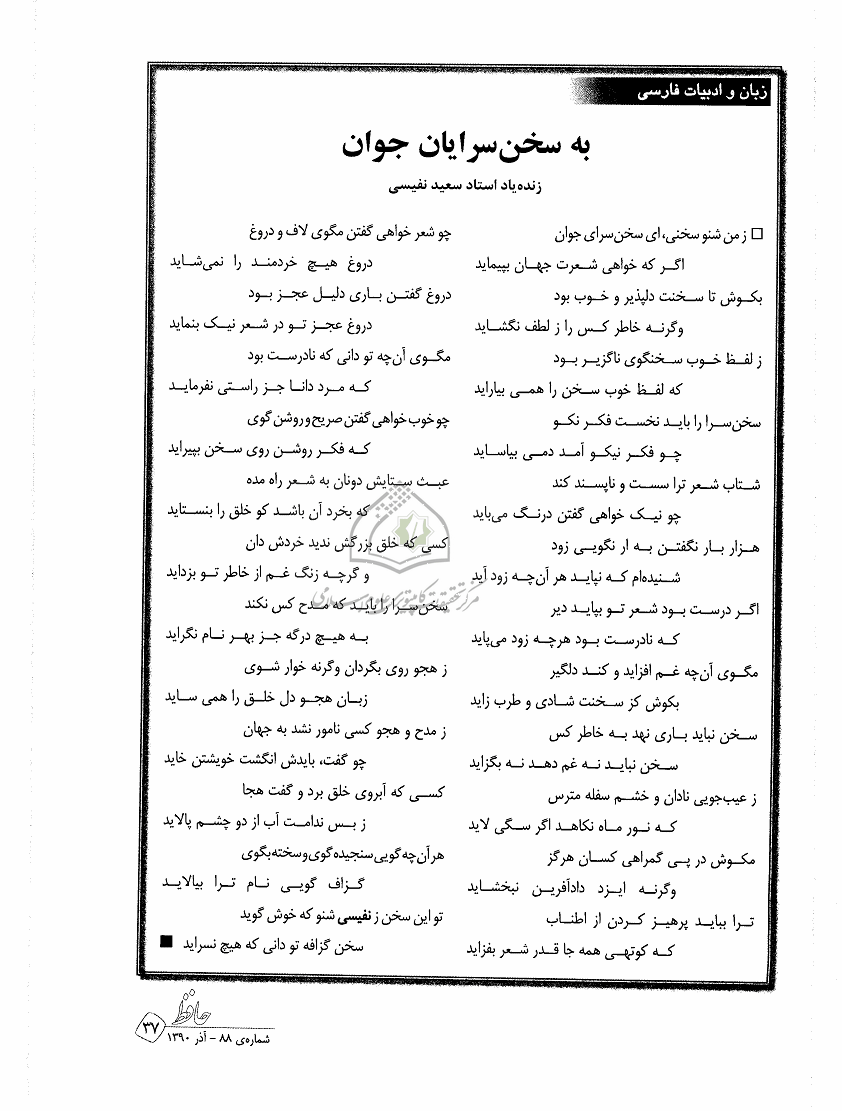 زبان و ادبیات فارسی
به سخن‌سرایان جوان
زنده‌یاد استاد سعید نفیسی
□ ز من شنو سخنی، ای سخن‌سرای جوان
اگر که خواهی شعرت جهان بپیماید
بکوش تا سخنت دلپذیر و خوب بود
وگرنه خاطر کس را ز لطف نگشاید
ز لفظ خوب سخنگوی ناگزیر بود
که لفظ خوب سخن را همی بیاراید
سخن‌سرا را باید نخست فکر نکو
چو فکر نیکو آمد دمی بیاساید
شتاب شعر ترا سست و ناپسند کند
چو نیک خواهی گفتن درنگ می‌باید
هزار بار نگفتن به ار نگویی زود
شنیده‌ام که نپاید هر آن‌چه زود آید
اگر درست بود شعر تو بپاید دیر
که نادرست بود هرچه زود می‌پاید
مگوی آن‌چه غم افزاید و کند دلگیر
بکوش کز سخنت شادی و طرب زاید
سخن نباید باری نهد به خاطر کس
سخن نباید نه غم دهد نه بگزاید
ز عیب‌جویی نادان و خشم سفله مترس
که نور ماه نکاهد اگر سگی لاید
مکوش در پی گمراهی کسان هرگز
وگرنه ایزد دادآفرین نبخشاید
ترا بباید پرهیز کردن از اطناب
که کوتهی همه جا قدر شعر بفزاید
چو شعر خواهی گفتن مگوی لاف و دروغ
دروغ هیچ خردمند را نمی‌شاید
دروغ گفتن باری دلیل عجز بود
دروغ عجز تو در شعر نیک بنماید
مگوی آن‌چه تو دانی که نادرست بود
که مرد دانا جز راستی نفرماید
چو خوب خواهی گفتن صریح و روشن گوی
که فکر روشن روی سخن بپیراید
عبث ستایش دونان به شعر راه مده
که بخرد آن باشد کو خلق را بنستاید
کسی که خلق بزرگش ندید خردش دان
و گرچه زنگ غم از خاطر تو بزداید
سخن‌سرا را باید که مدح کس نکند
به هیچ درگه جز بهر نام نگراید
ز هجو روی بگردان وگرنه خوار شوی
زبان هجو دل خلق را همی ساید
ز مدح و هجو کسی نامور نشد به جهان
چو گفت، بایدش انگشت خویشتن خاید
کسی که آبروی خلق برد و گفت هجا
ز بس ندامت آب از دو چشم پالاید
هر آن‌چه گویی سنجیده گوی و سخته بگوی
گزاف گویی نام ترا بیالاید
تو این سخن ز نفیسی شنو که خوش گوید
سخن گزافه تو دانی که هیچ نسراید ■
مرکز تحقیقات کامپیوتری علوم اسلامی
حافظ
۳۷
شماره‌ی ۸۸ - آذر ۱۳۹۰